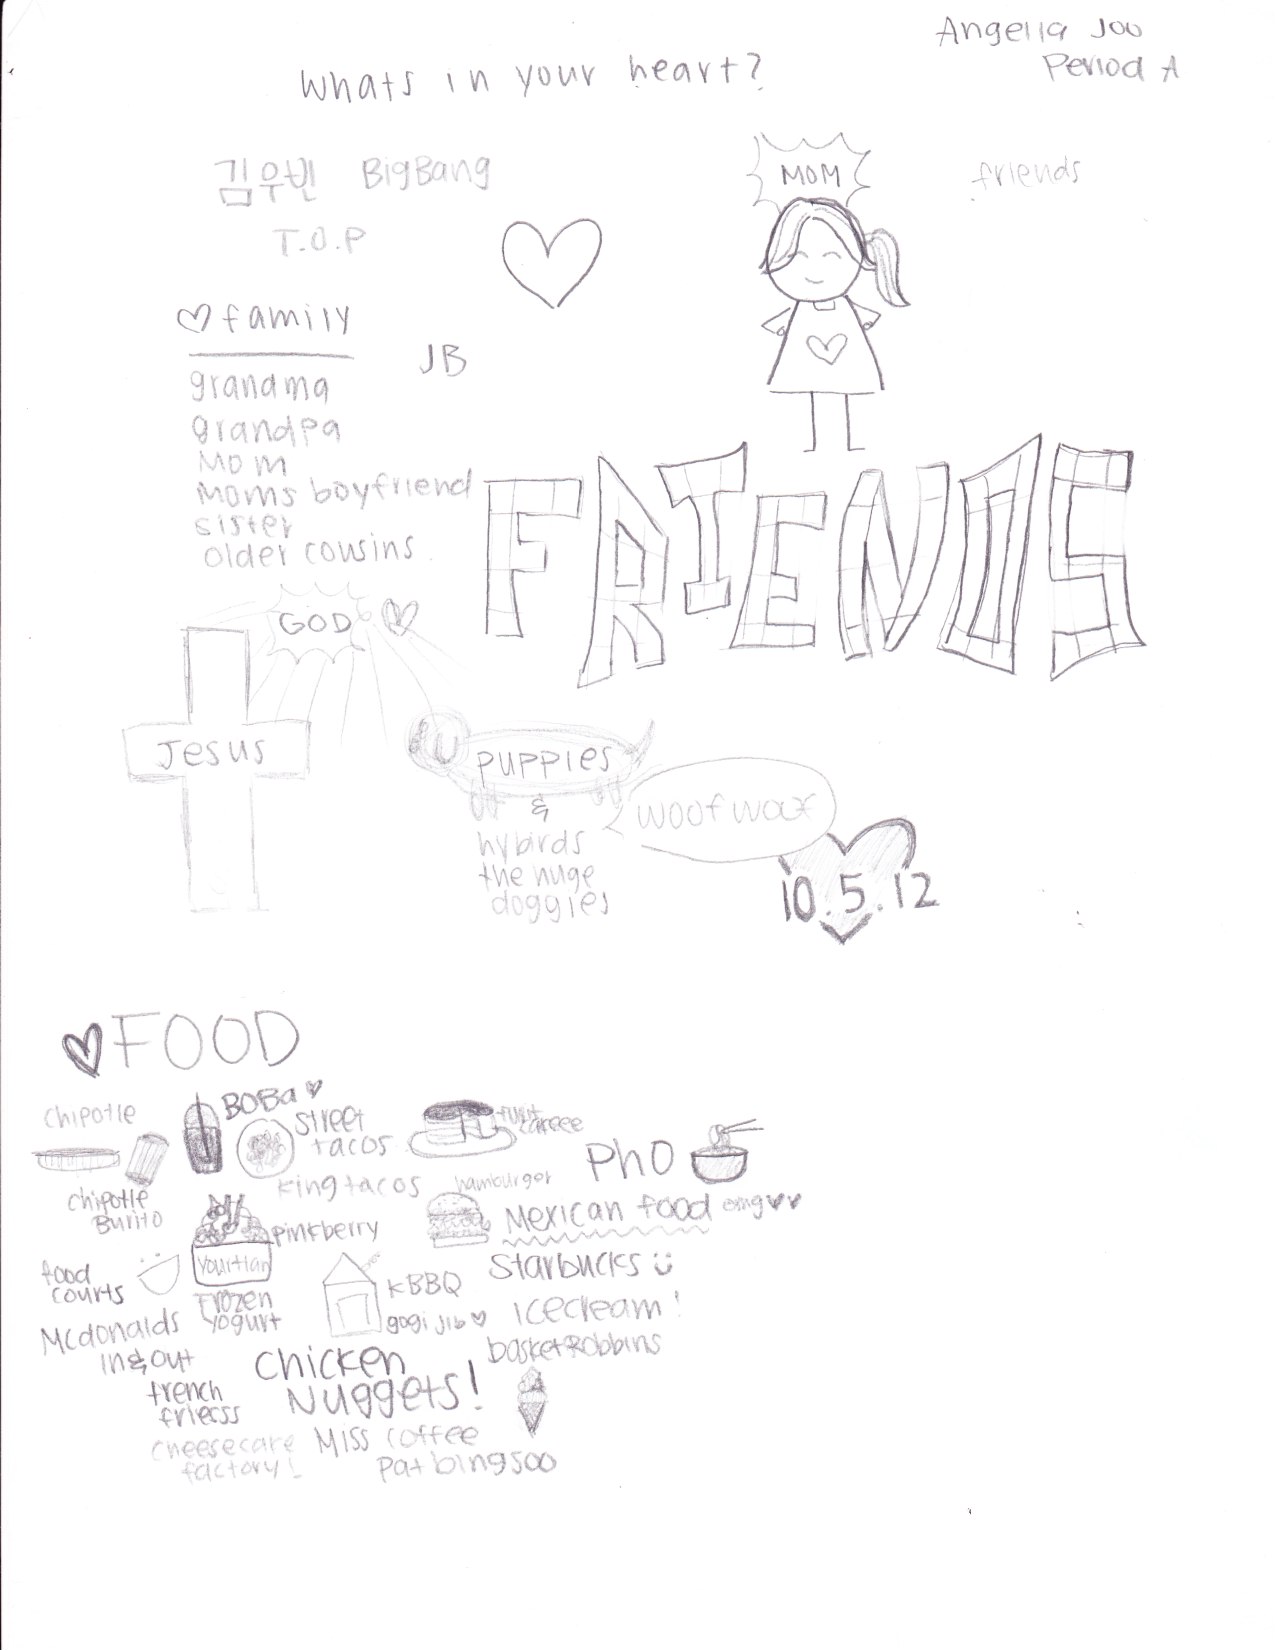 Angella Joo
Period A
Whats in your heart?
김우빈 BigBang
T.O.P
MOM
friends
family
JB
grandma
grandpa
Mom
Moms boyfriend
sister
older cousins
FRIENDS
GOD
Jesus
puppies
&
hybirds
the huge
doggies
woof woof
10.5.12
FOOD
chipotle
BOBa
street
tacos
king tacos
Pho
chipotle
Burito
hamburger
Mexican food omg
pinkberry
Frozen
Yogurt
food
courts
KBBQ
gogi jib
Starbucks
icecream!
basket Robbins
Mcdonalds
in&out
french
friesss
Chicken
Nuggets!
cheesecake
factory!
Miss coffee
Pat bingsoo